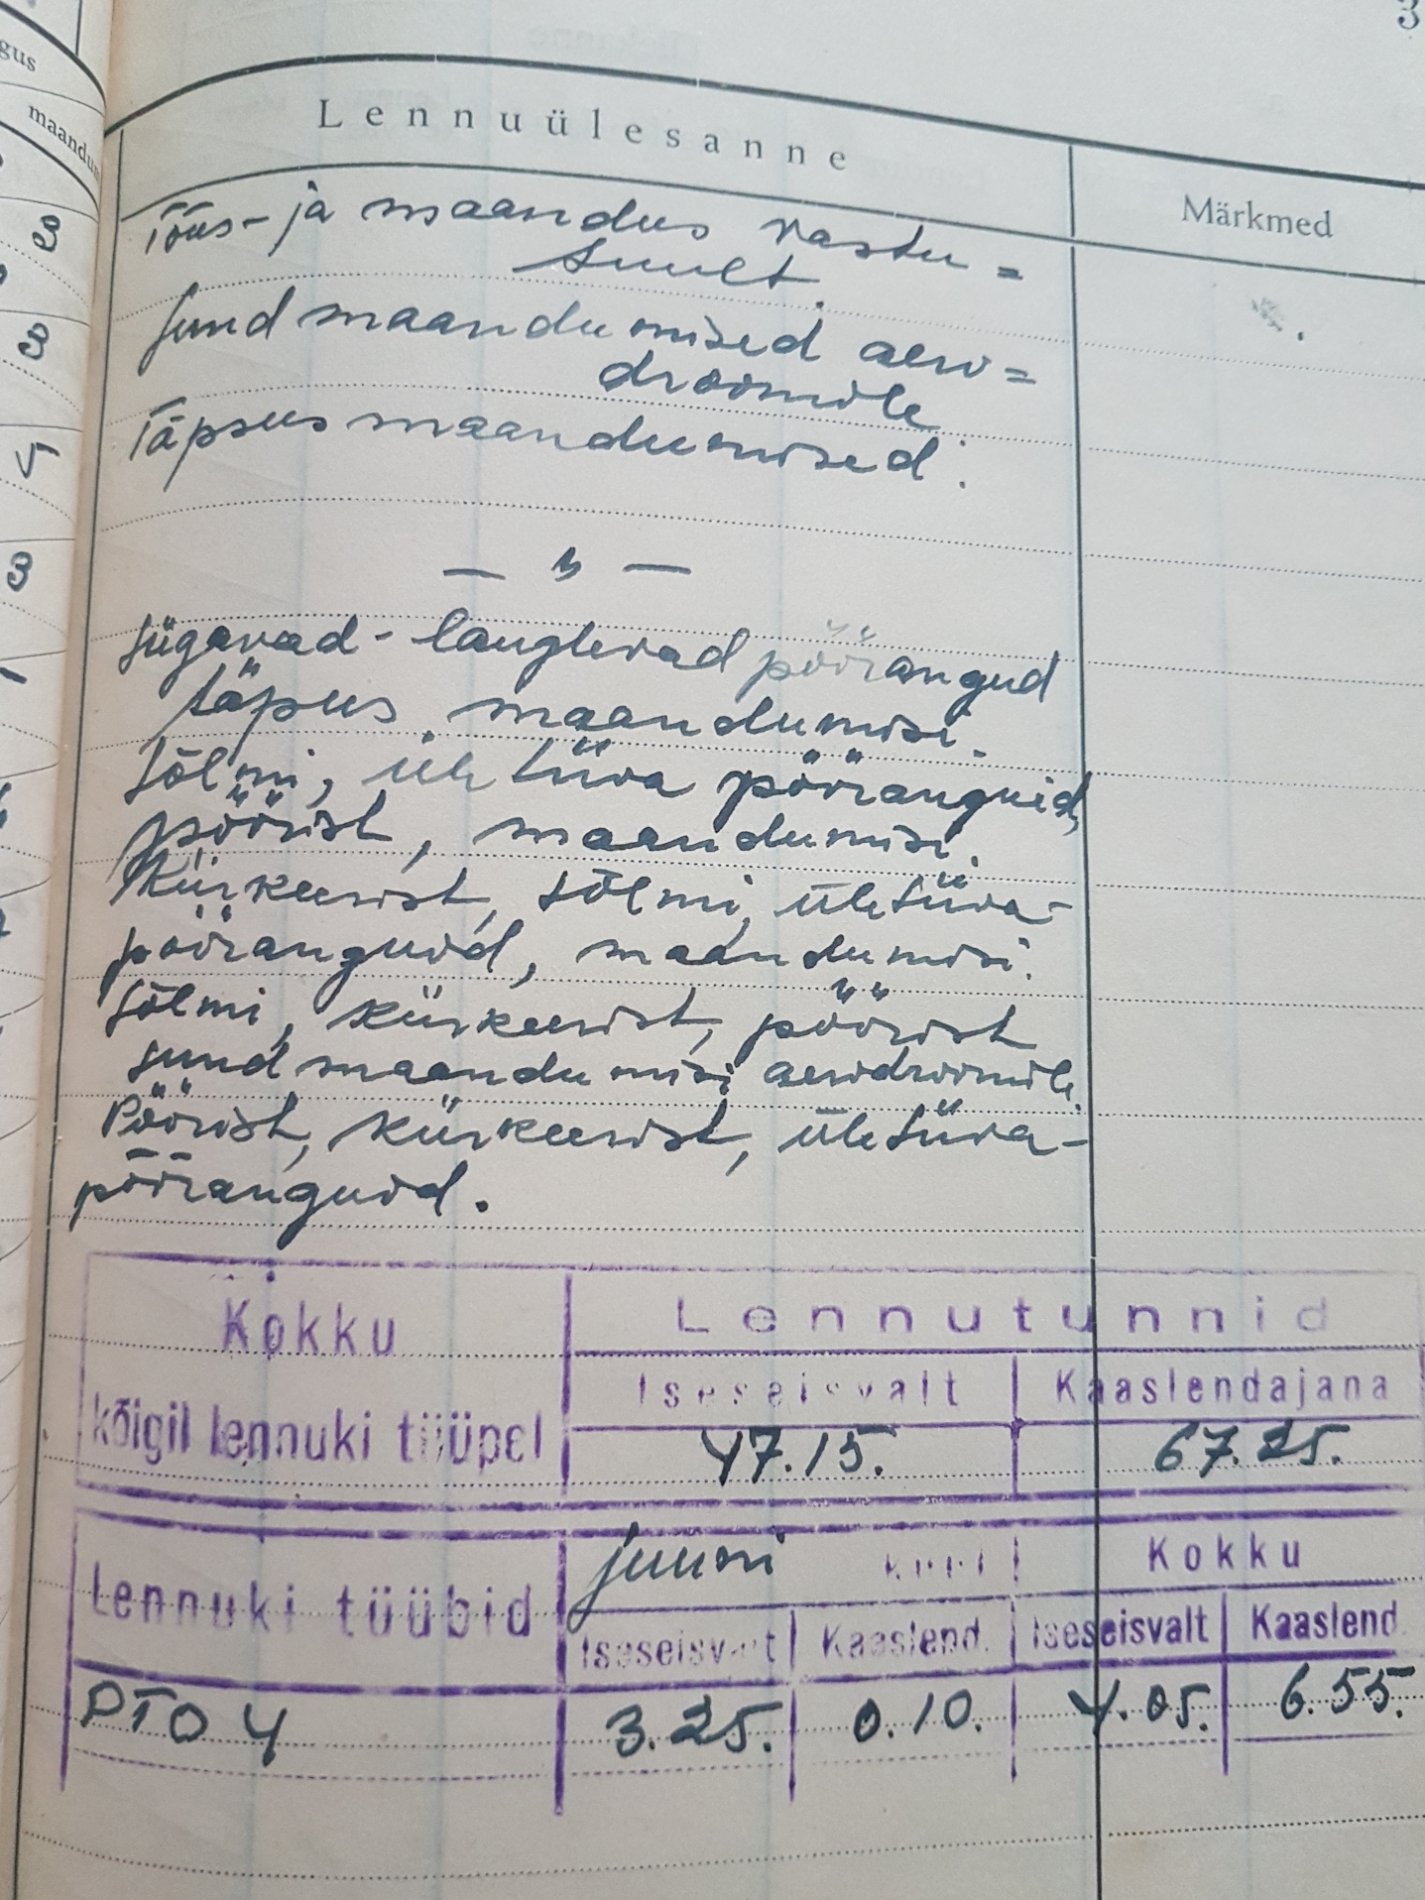 3
gus
maandum
Lennuülesanne
Märkmed
3
3
5
3
Tõus- ja maandus vastu=
tuult.
Sund maandumised aero=
droomile.
Täpsus maandumised.
— " —
Sügavad - lauglevad pöörangud
täpsus maandumisi.
Sõlmi, üle tiiva pööranguid,
pöörist, maandumisi.
Kiirkeerist, sõlmi, üle tiiva-
pööranguid, maandumisi.
Sõlmi, kiirkeerist, pöörist
sund maandumisi aerodroomile.
Pöörist, kiirkeerist, üle tiiva-
pööranguid.
Kokku
kõigil lennuki tüüpel
Lennutunnid
Iseseisvalt Kaaslendajana
47.15. 67.25.
Lennuki tüübid
juuni kuul Kokku
Iseseisvalt Kaaslend. Iseseisvalt Kaaslend.
PTO 4 3.25. 0.10. 4.05. 6.55.